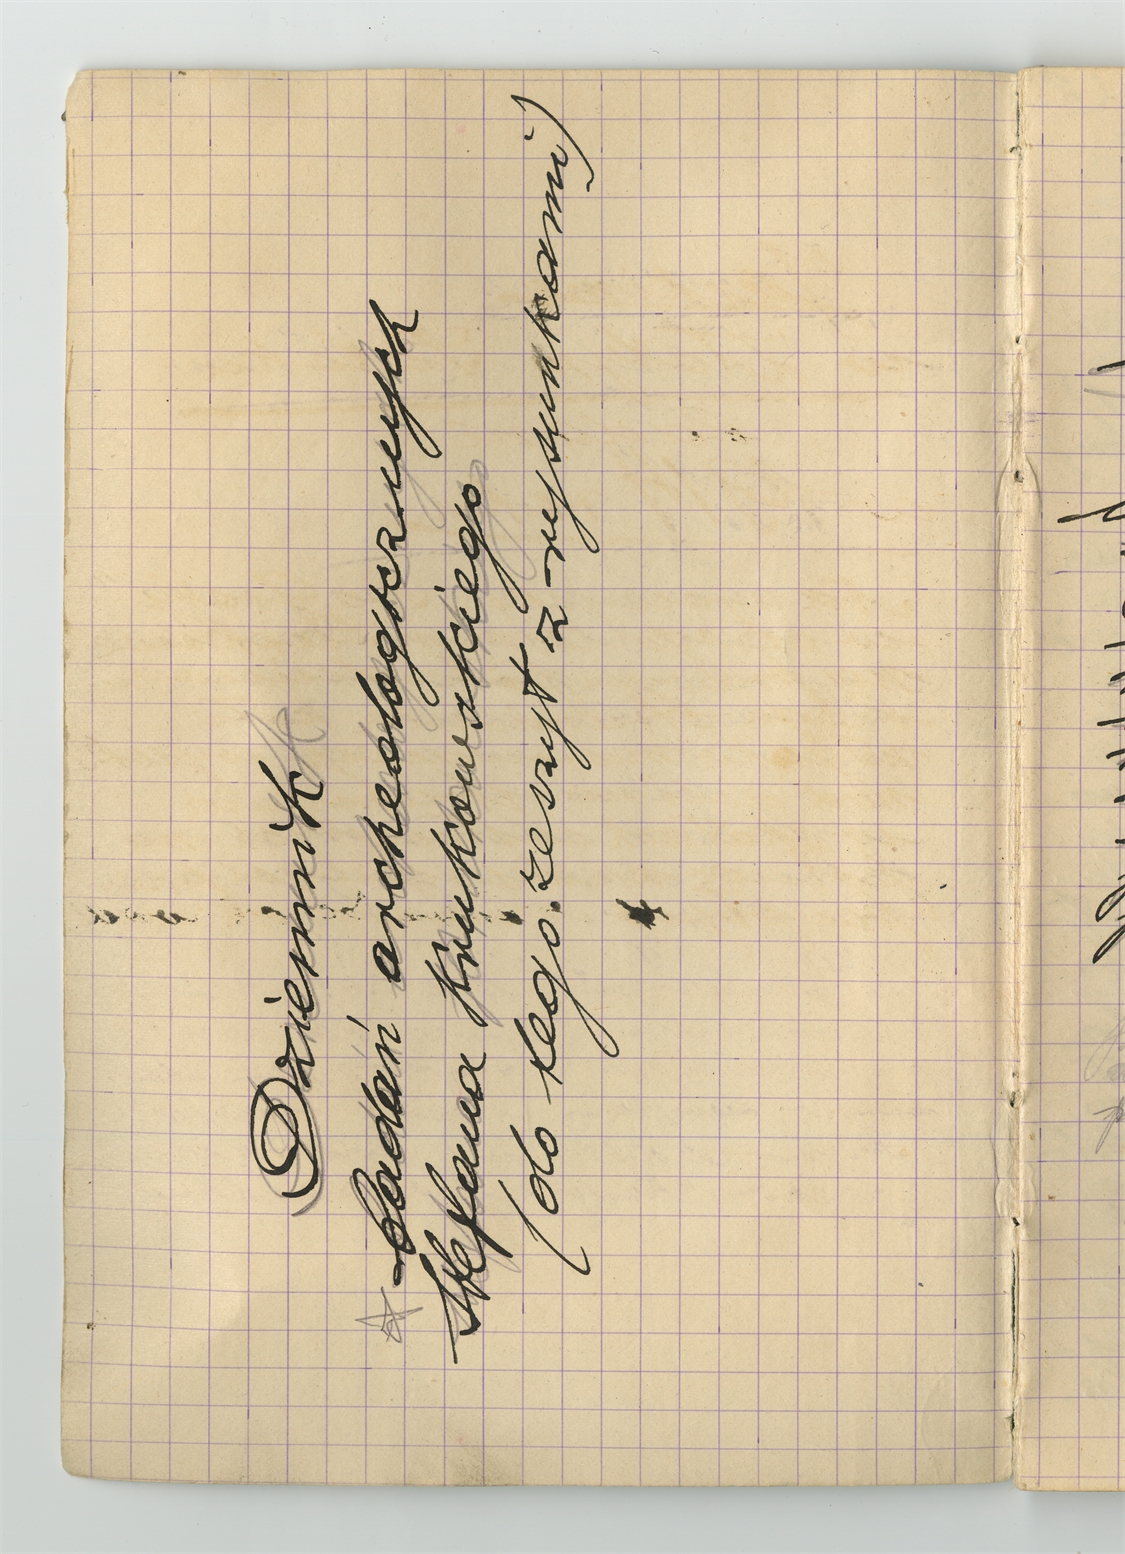 Dziennik
badań archeologicznych
Stefana Krukowskiego
(do tego zeszyt z rysunkami)